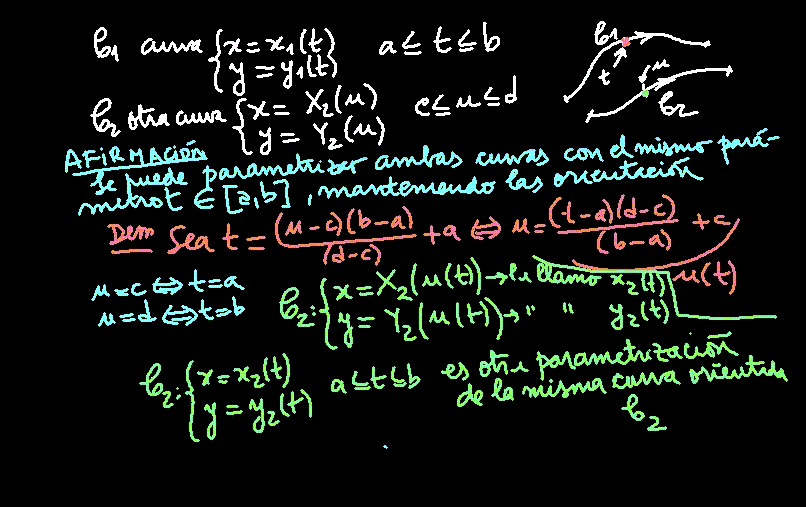 𝒞1 curva { x = x1(t)   a ≤ t ≤ b
y = y1(t)
𝒞1
t
u
𝒞2
𝒞2 otra curva { x = X2(u)   c ≤ u ≤ d
y = Y2(u)
AFIRMACIÓN
Se puede parametrizar ambas curvas con el mismo pará-
metro t ∈ [a,b], manteniendo las orientación
Dem Sea t = (u-c)(b-a)/(d-c) + a ⇔ u = (t-a)(d-c)/(b-a) + c
u(t)
u = c ⇔ t = a
u = d ⇔ t = b
𝒞2: { x = X2(u(t)) → le llamo x2(t)
y = Y2(u(t)) → " " y2(t)
𝒞2: { x = x2(t)   a ≤ t ≤ b   es otra parametrización
y = y2(t)   de la misma curva orientada
𝒞2